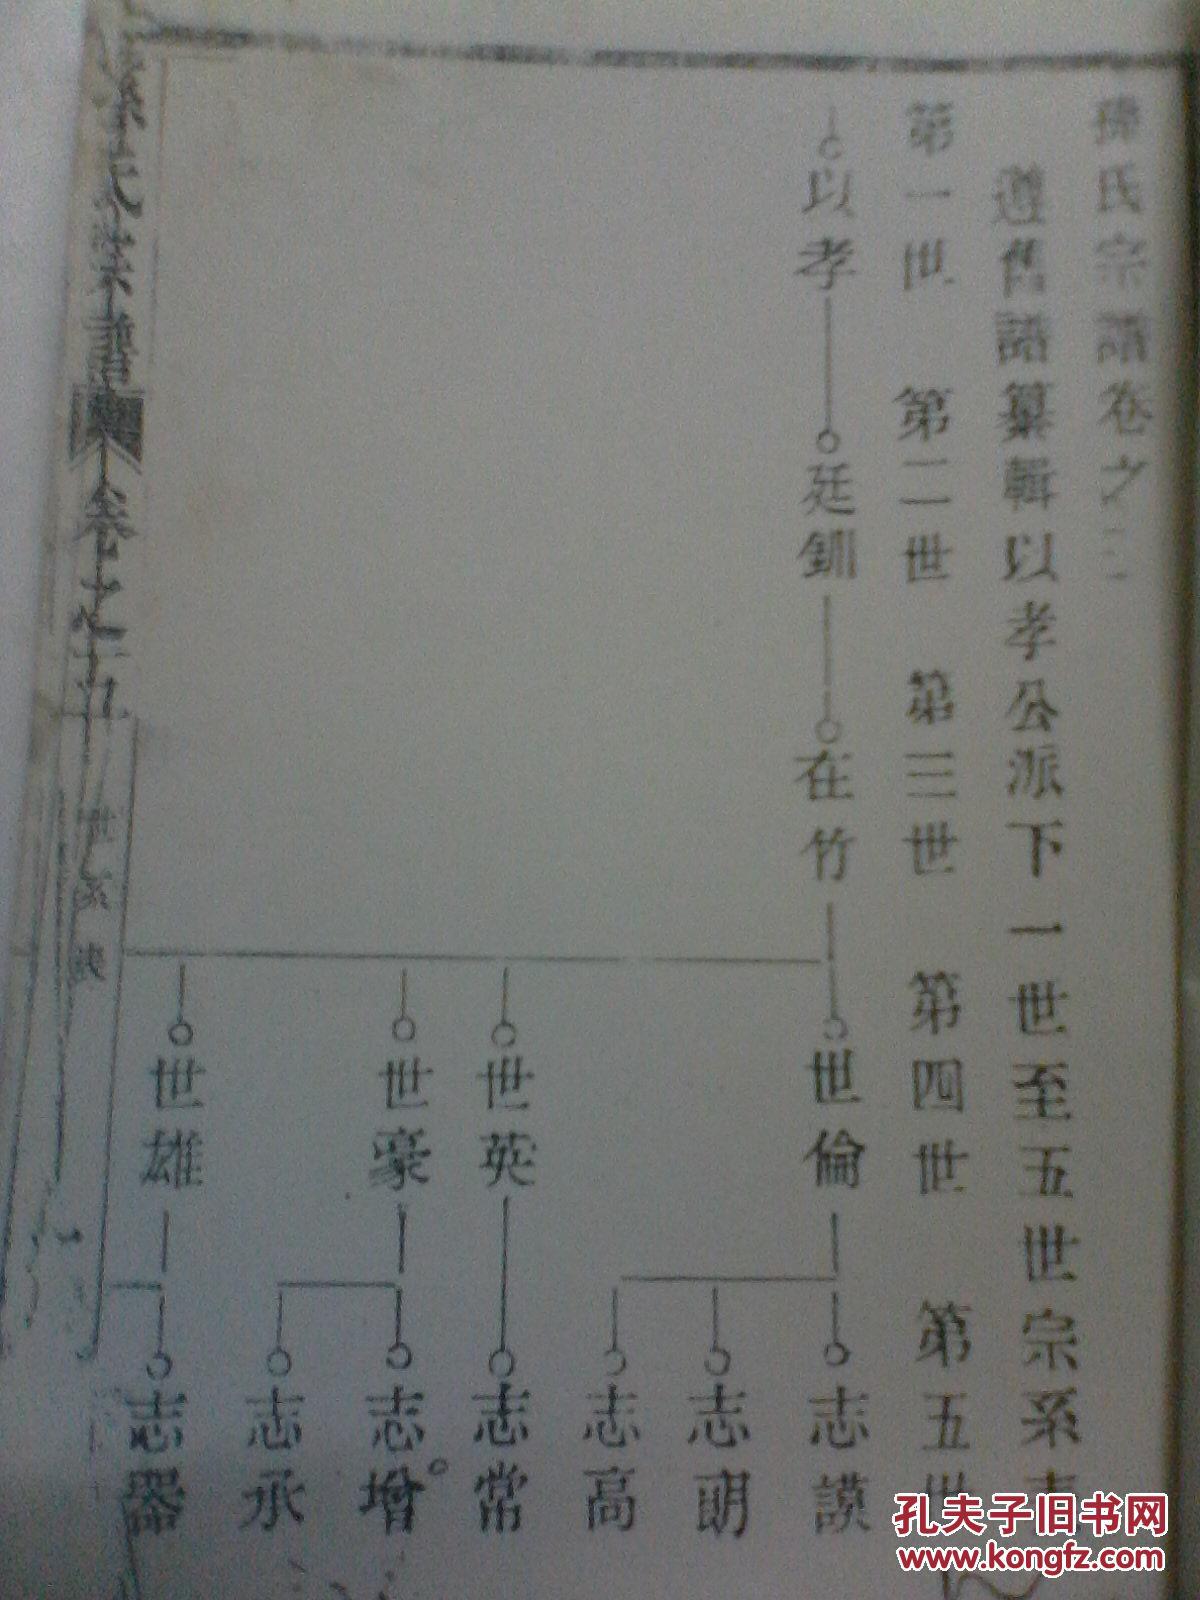 孫氏宗譜卷之三
遵舊譜纂輯以孝公派下一世至五世宗系
第一世 第二世 第三世 第四世 第五世
以孝
廷釧
在竹
世倫
志謨
志明
志高
世英
志常
世豪
志增
志承
世雄
志器
孫氏宗譜
卷之
世系
孔夫子旧书网
www.kongfz.com